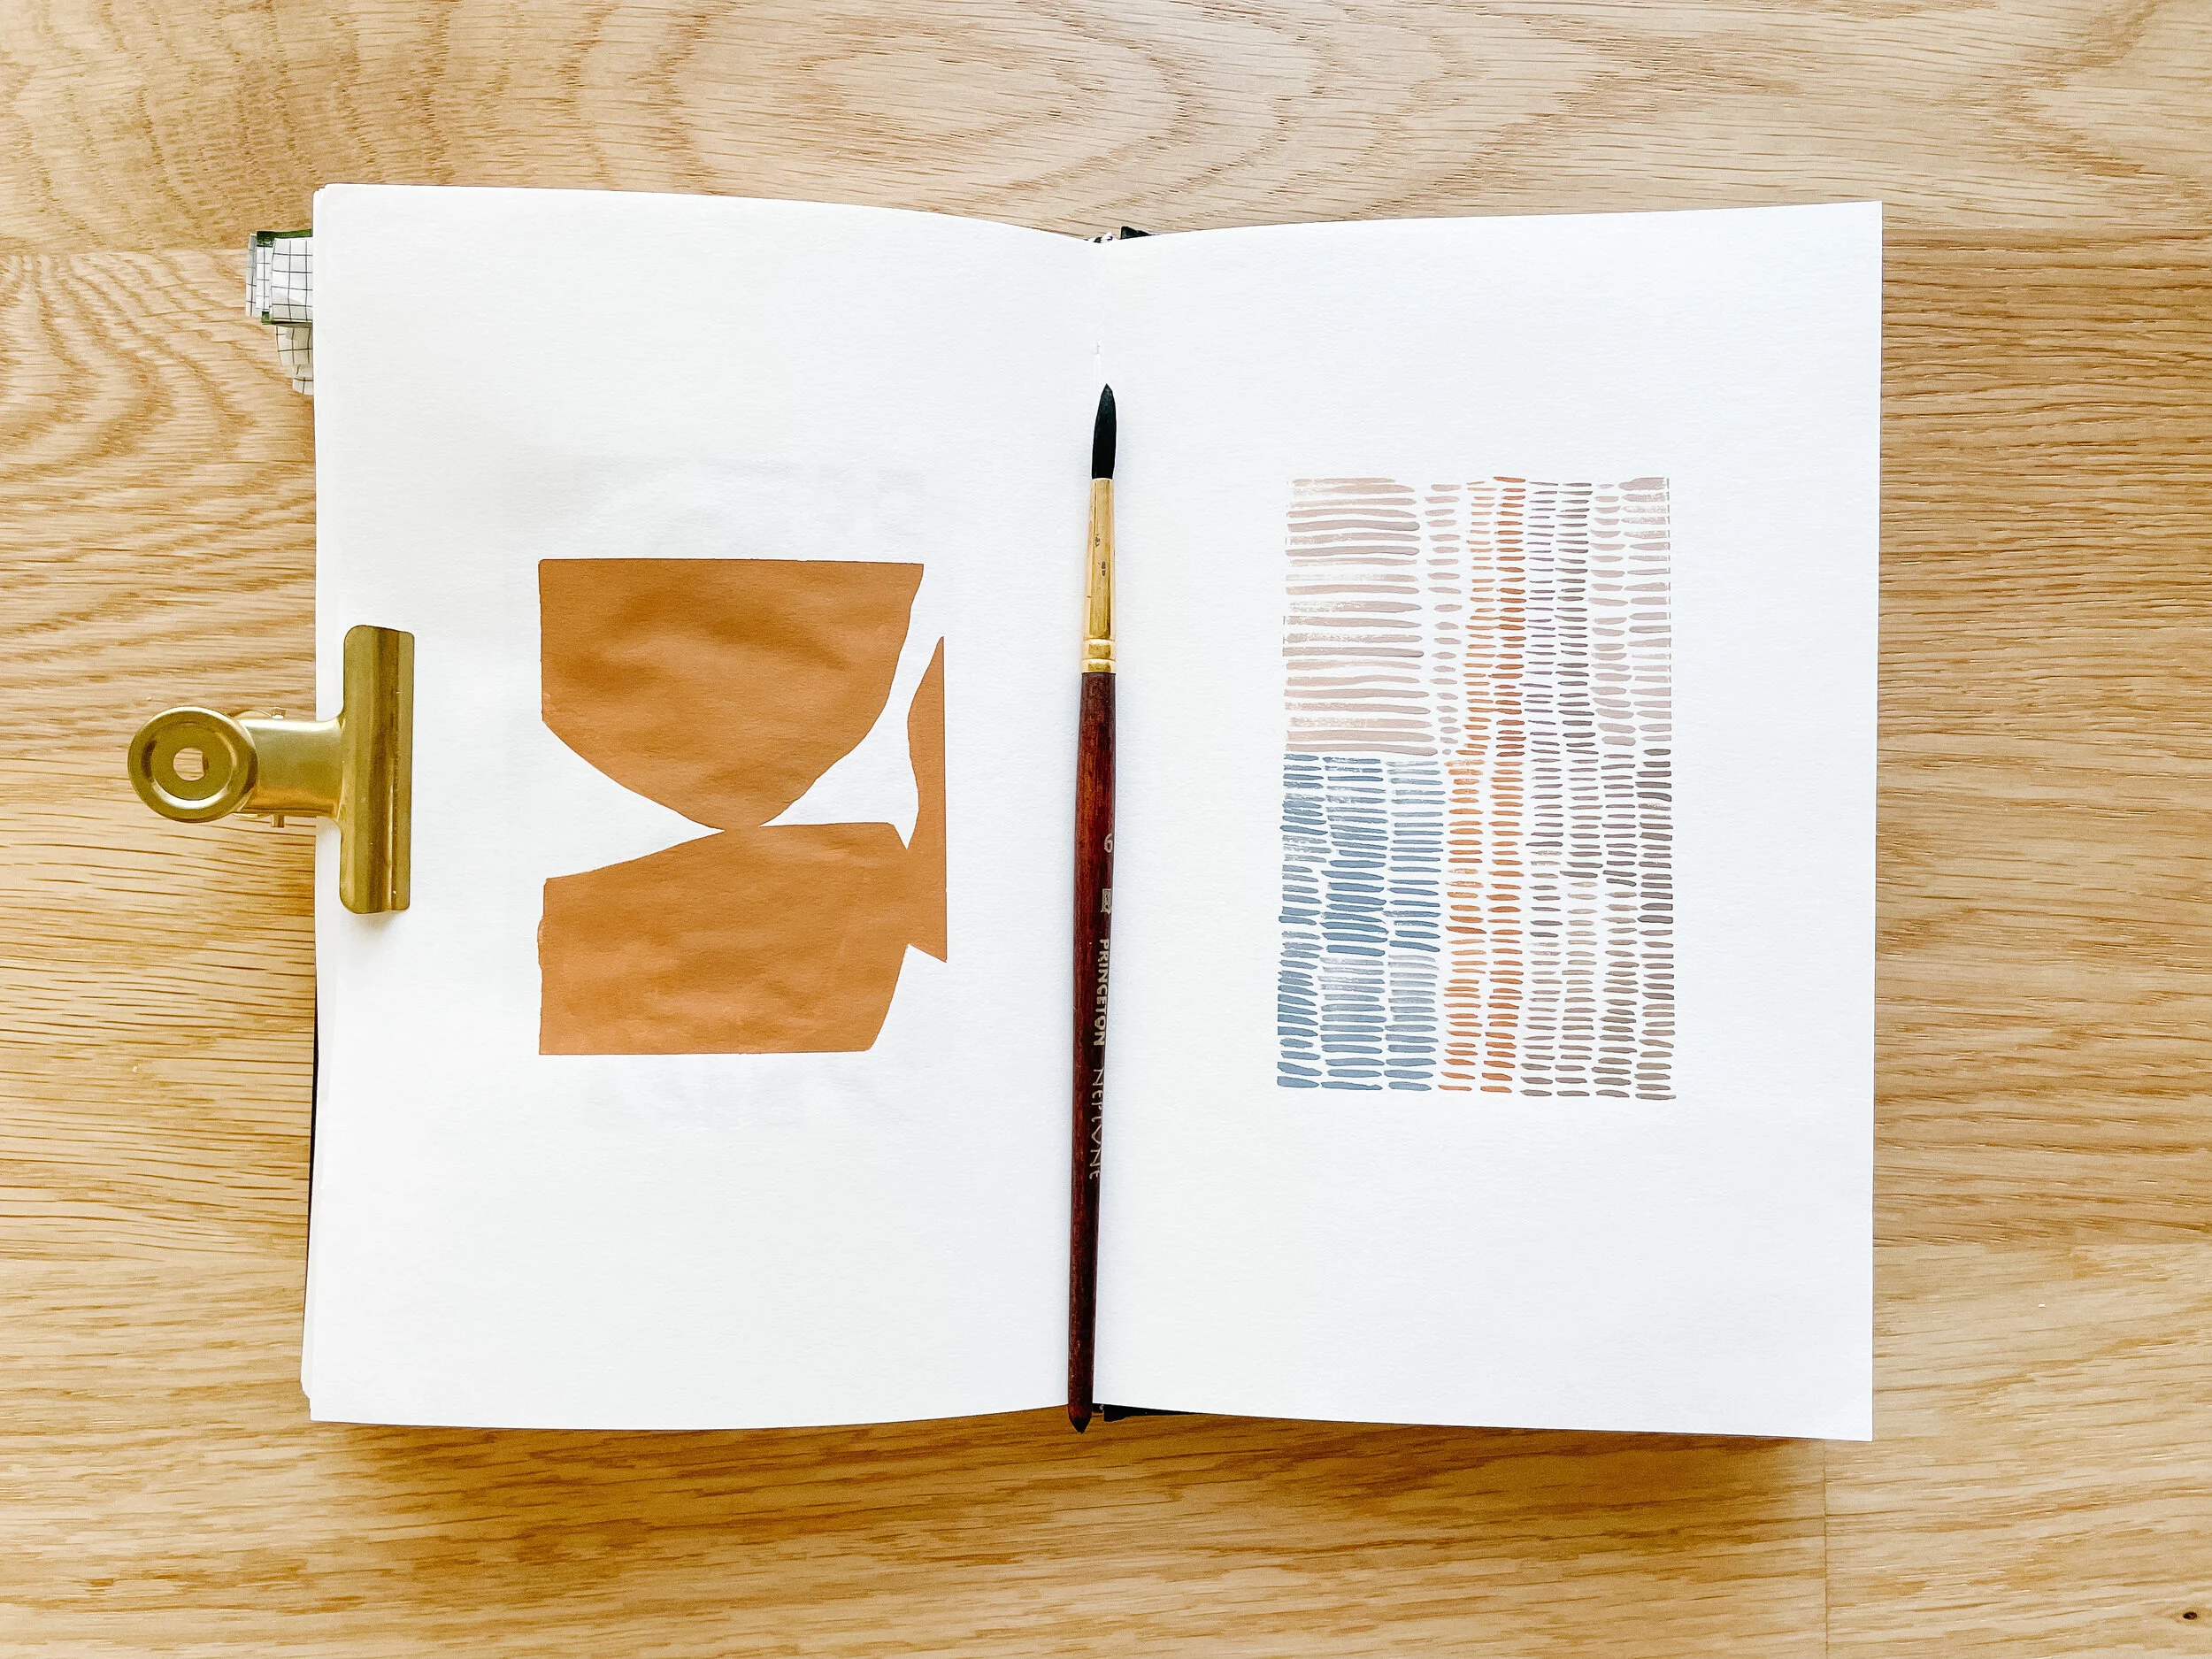 6 PRINCETON NEPTUNE